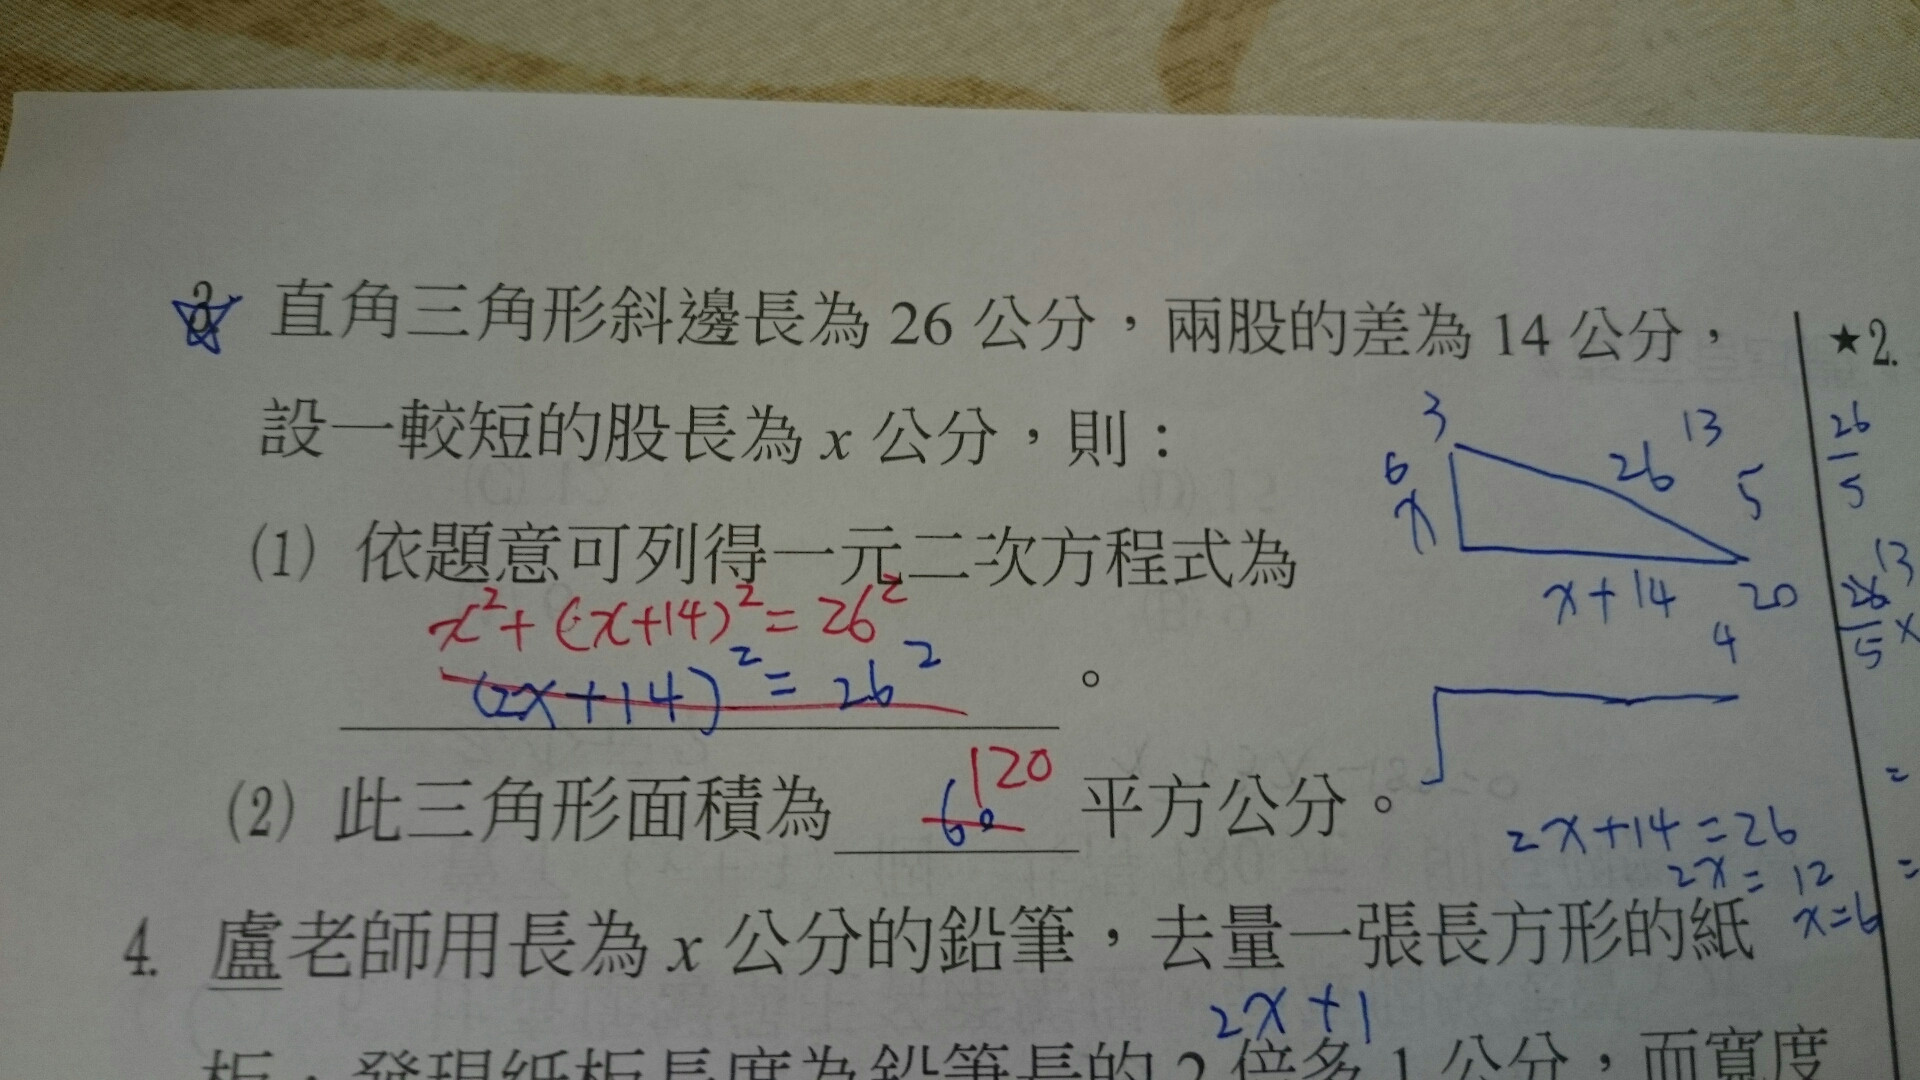 3. 直角三角形斜邊長為 26 公分，兩股的差為 14 公分，
設一較短的股長為 x 公分，則：
(1) 依題意可列得一元二次方程式為
x²+(x+14)²=26²
(2x+14)²=26² 。
(2) 此三角形面積為 60 120 平方公分。
4. 盧老師用長為 x 公分的鉛筆，去量一張長方形的紙
2x+1
板，發現紙板長度為鉛筆長的 2 倍多 1 公分，而寬度
3
13
26
6
5
x
x+14
20
4
2x+14=26
2x=12
x=6
★2.
26
5
13
26
5
x
=
=